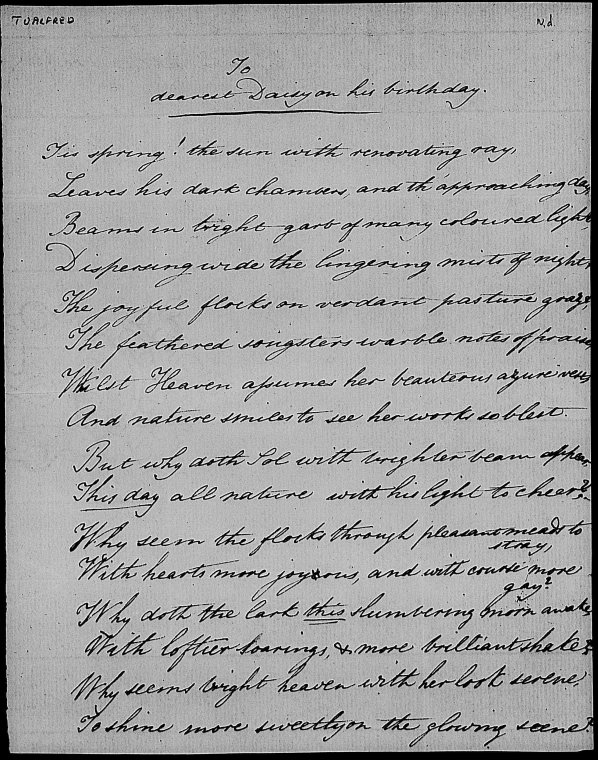 TO ALFRED
N.d.
To
dearest Daisy on his birthday.
Tis spring! the sun with renovating ray,
Leaves his dark chambers, and th' approaching day,
Beams in bright garb of many coloured light,
Dispersing wide the lingering mists of night,
The joyful flocks on verdant pasture graze,
The feathered songsters warble notes of praise,
Whilst Heaven assumes her beauteous azure vest,
And nature smiles to see her works so blest.
But why doth Sol with brighter beam appear,
This day all nature with his light to cheer?
Why seem the flocks through pleasant meads to
stray,
With hearts more joyous, and with course more
gay?
Why doth the lark this slumbering morn awake,
With loftier soarings, & more brilliant shake?
Why seems bright heaven with her look serene,
To shine more sweetly on the glowing scene?